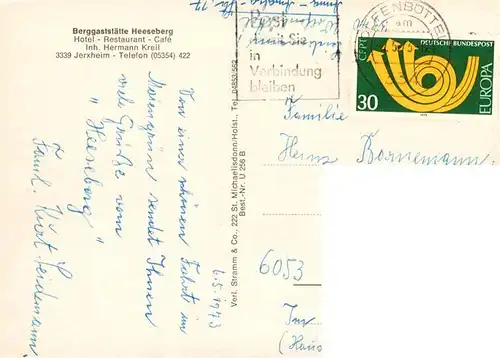 Berggaststätte Heeseberg
Hotel - Restaurant - Café
Inh. Hermann Kreil
3339 Jerxheim - Telefon (05354) 422
Von einer schönen Fahrt im
Maiengrün sendet Ihnen
viele Grüße vom
"Heeseberg"
Famil. Kurt Seidemann
6.5.1973
Verl. Stramm & Co., 222 St. Michaelisdonn/Holst., Tel. 04853/562
Best.-Nr. U 256 B
in
Verbindung
bleiben
am
CEPT
DEUTSCHE BUNDESPOST
EUROPA
30
Familie
Heinz Bornemann
6053
Im
(Haus